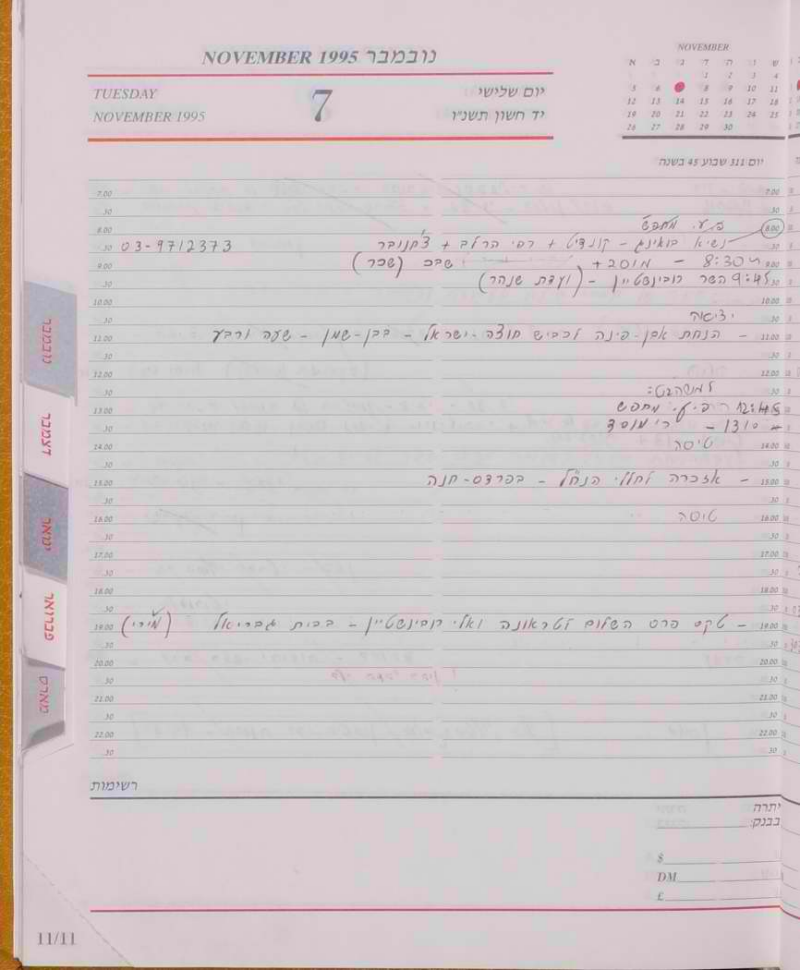 NOVEMBER 1995 נובמבר
TUESDAY 7 יום שלישי
NOVEMBER 1995 יד חשון תשנ"ו
NOVEMBER
א ב ג ד ה ו ש
1 2 3 4
5 6 8 9 10 11
12 13 14 15 16 17 18
19 20 21 22 23 24 25
26 27 28 29 30
יום 311 שבוע 45 בשנה
7.00
.30
8.00 פ.ע. מתפ"ש
.30 נשיא בואינג - קונדיט + רפי הרלב + 03-9712373
9.00 8:30 - מוסב + שבכ (שכר)
.30 9:45 השר רובינשטיין - (ועדת שנהר)
10.00
.30 יציאה
11.00 - הנחת אבן-פינה לכביש חוצה-ישראל - בבן-שמן - שעה ורבע
.30
12.00
.30 למשהבט:
13.00 12:45 פ.ע. מתפ"ש
.30 1310 - ר' מוסד
14.00 טיסה
.30
15.00 - אזכרה לחללי הנח"ל - בפרדס-חנה
.30
16.00 טיסה
.30
17.00
.30
18.00
.30
19.00 - טקס פרס השלום לטראונה ואלי רובינשטיין - בבית גבריאל (מירי)
.30
20.00
.30
21.00
.30
22.00
.30
רשימות
יתרה
בבנק:
$
DM
£
11/11
נובמבר
דצמבר
ינואר
פברואר
מארס